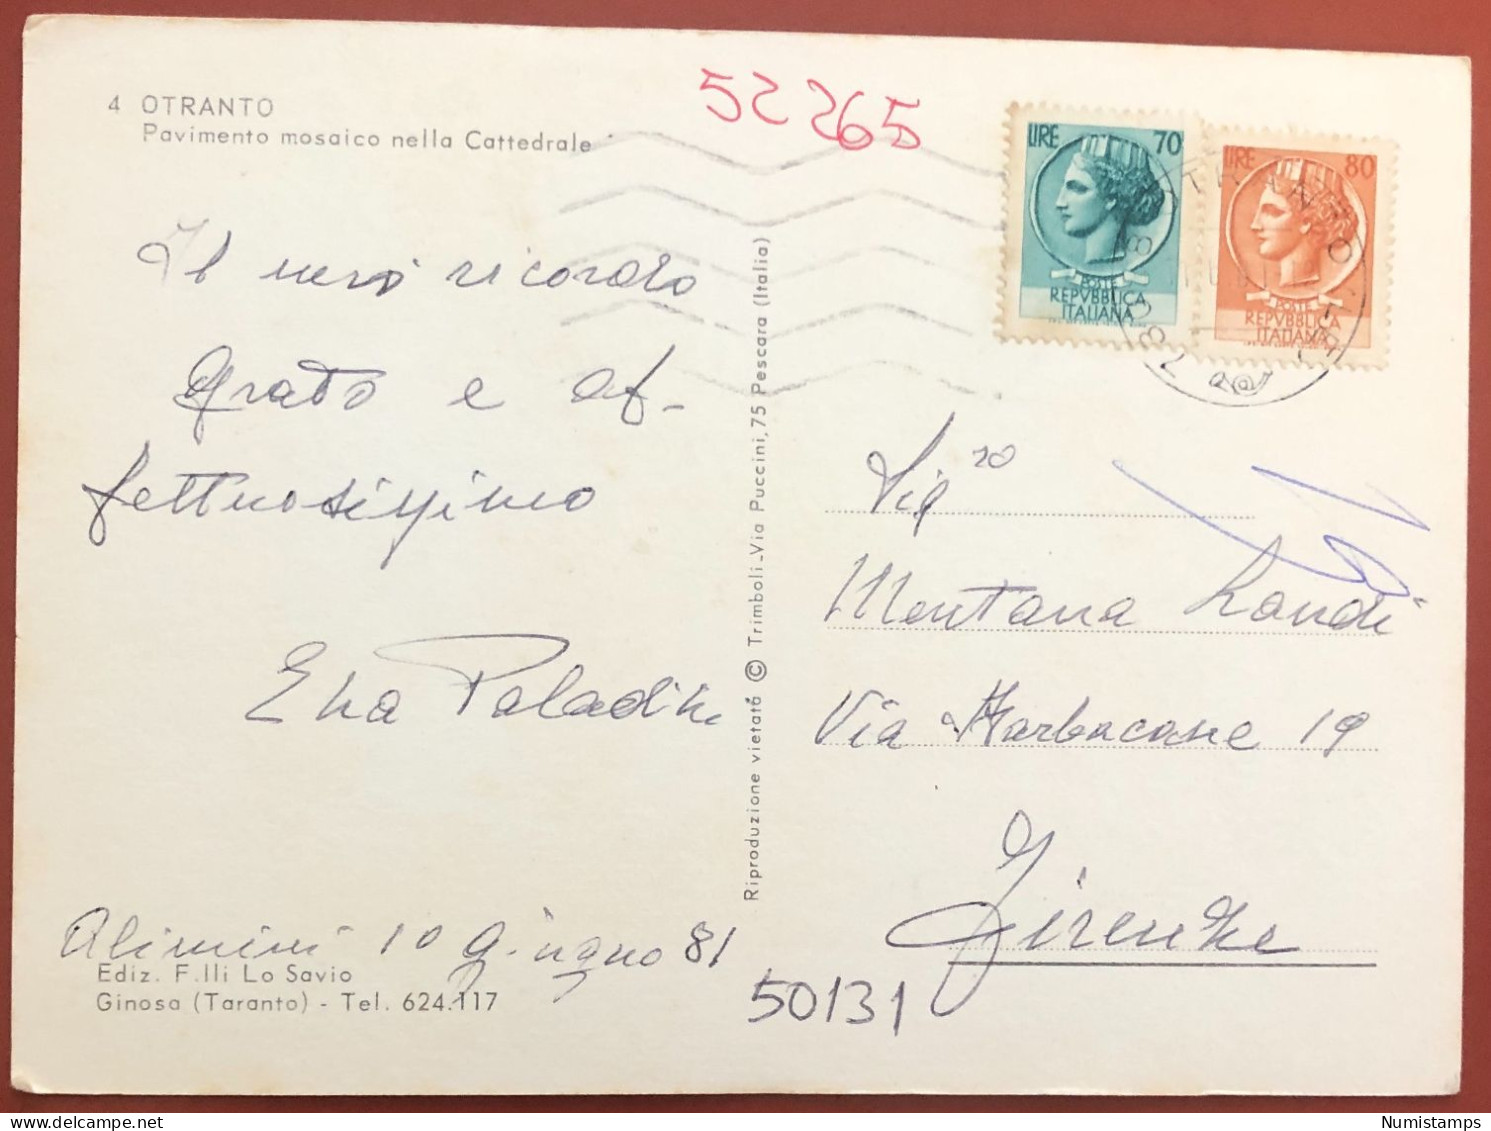 4 OTRANTO
Pavimento mosaico nella Cattedrale
52265
LIRE 70
POSTE
REPVBBLICA
ITALIANA
LIRE 80
POSTE
REPVBBLICA
ITALIANA
OTRANTO
Il mio ricordo
grato e af-
fettuosissimo
Ena Paladini
Alimini 10 giugno 81
Ediz. F.lli Lo Savio
Ginosa (Taranto) - Tel. 624.117
Riproduzione vietata © Trimboli - Via Puccini, 75 Pescara (Italia)
Sig ra
Montana Landi
Via Barbacane 19
Firenze
50131
Numistamps.com